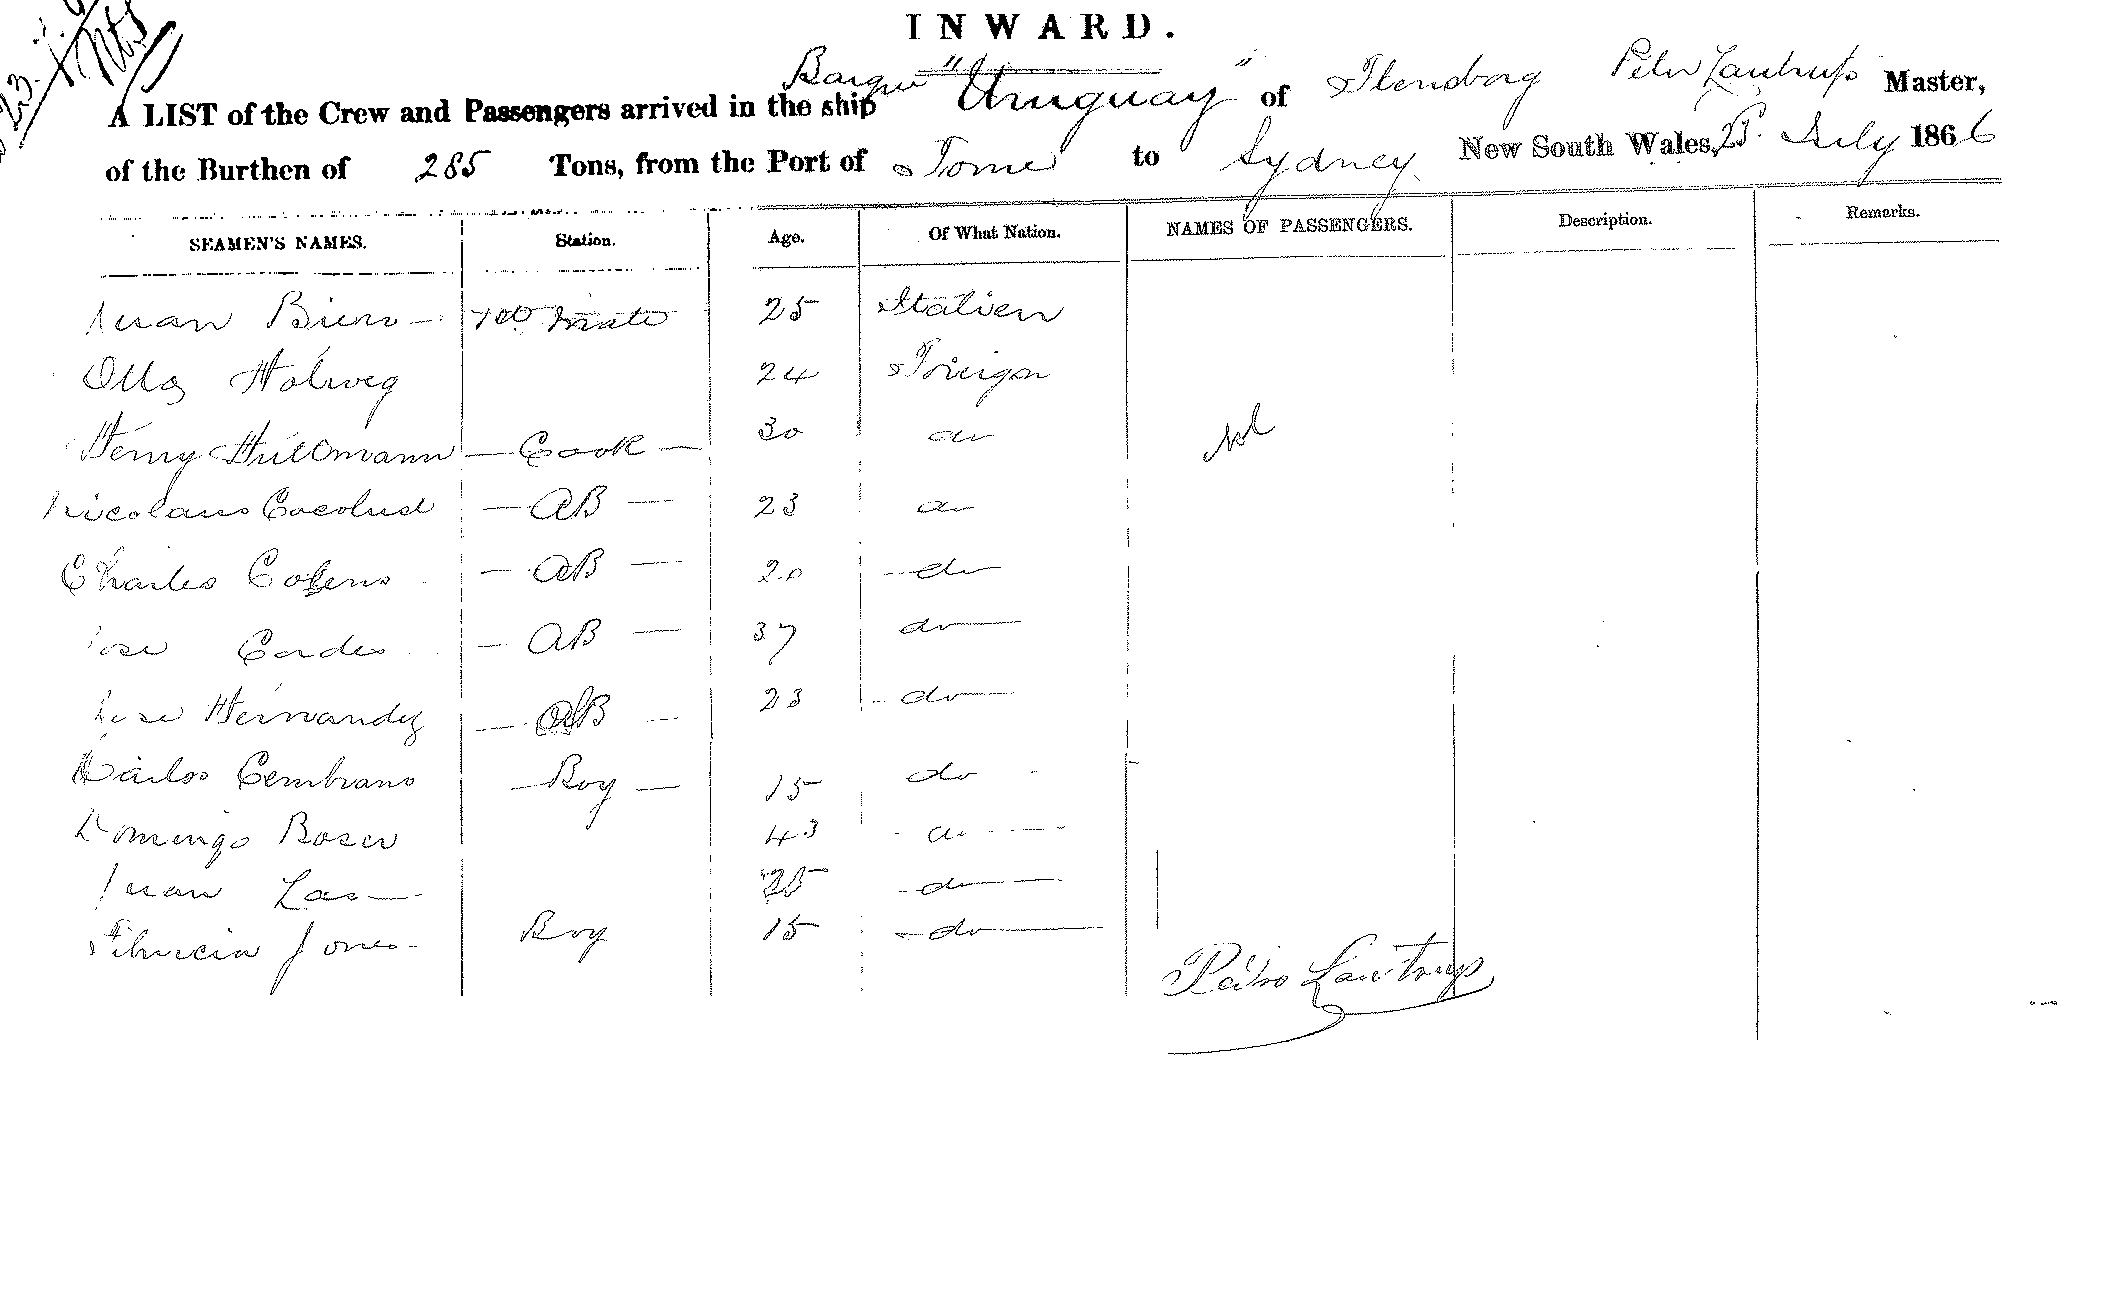 INWARD.
Barque
A LIST of the Crew and Passengers arrived in the ship "Uruguay" of Flensborg Peter Lautrup Master,
of the Burthen of 285 Tons, from the Port of Tome to Sydney New South Wales, 25 July 1866
SEAMEN'S NAMES. Station. Age. Of What Nation. NAMES OF PASSENGERS. Description. Remarks.
Juan mate 25 Italien
Otto Holweg 24 Foreign
Henry Hullmann — Cook — 30 do
Nicolaus — AB — 23 do
Charles — AB — 20 do
Jose Cordes — AB — 37 do
Jose Hernandez — AB — 23 do
Carlos Cembrano — Boy — 15 do
Domingo 43 do
Juan 25 do
Boy 15 do
Pedro Lautrup